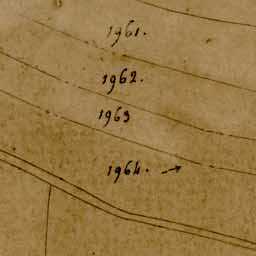 1961.
1962.
1963
1964. →